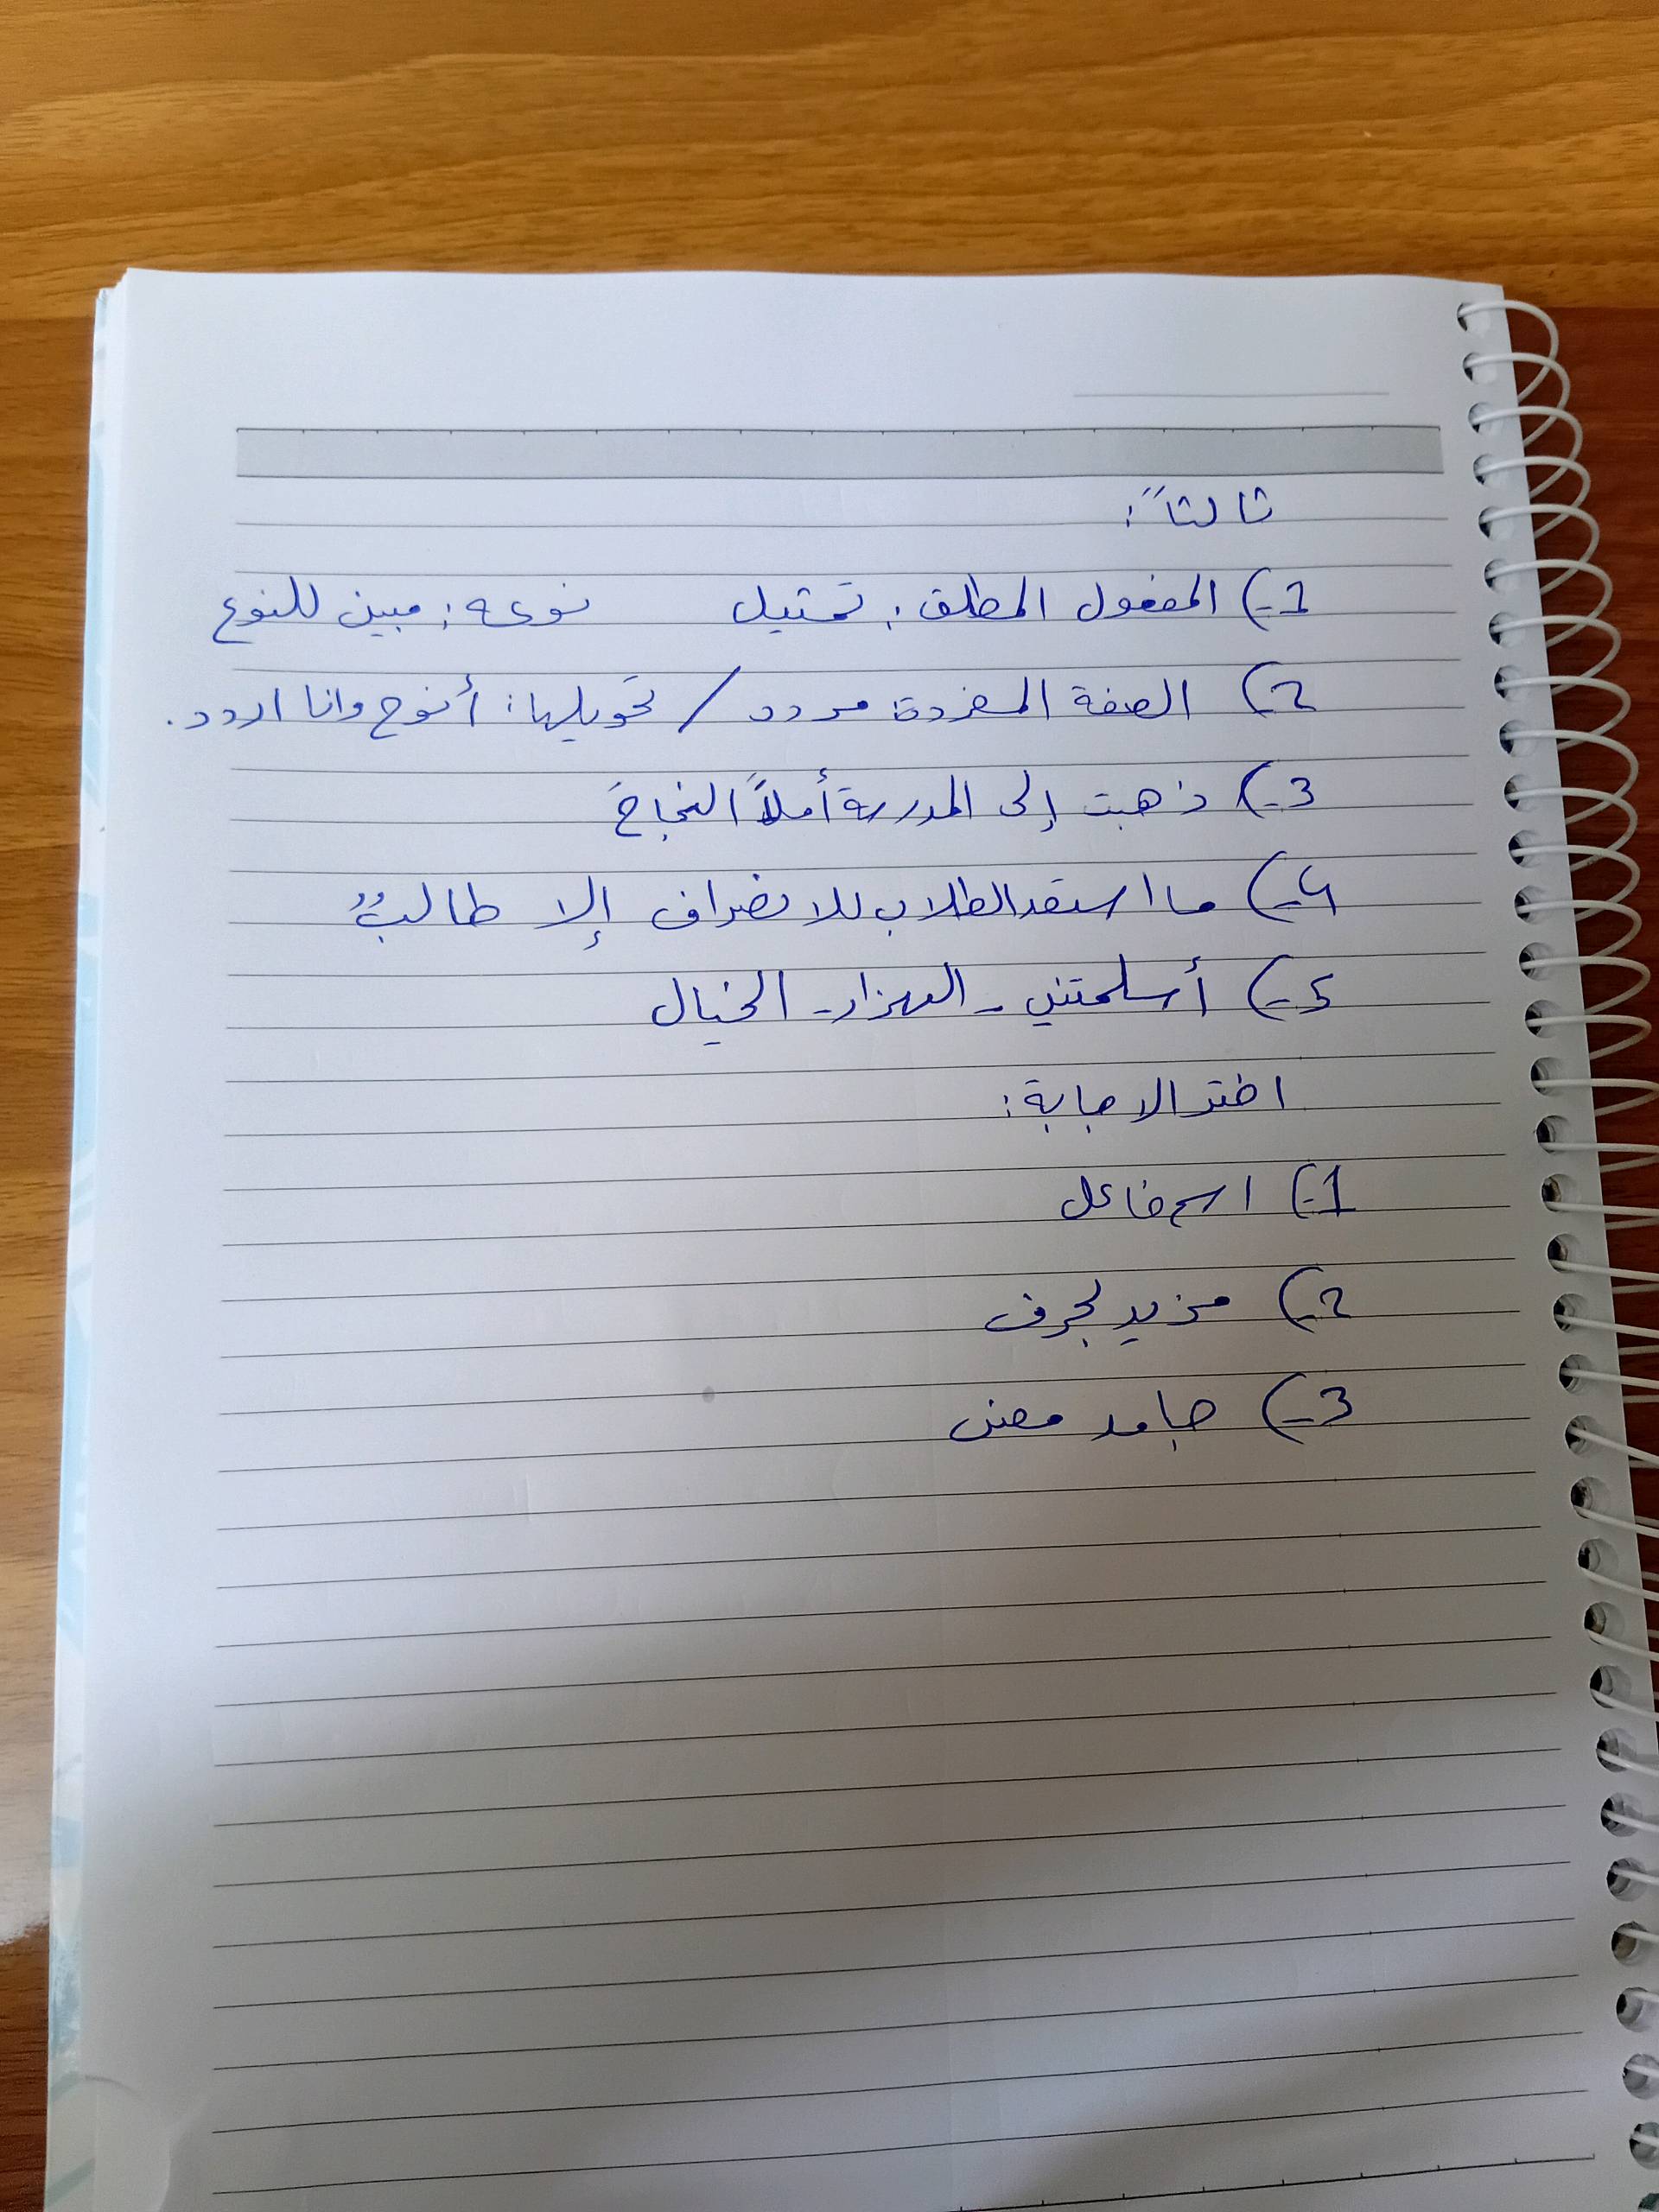 ثالثاً:
1-) المفعول المطلق: تمثيل نوعه: مبين للنوع
2) الصفة المفردة: مردد / تحويلها: أنوح وانا اردد.
3-) ذهبت إلى المدرسة أملاً النجاحَ
4-) ما استعد الطلاب للانصراف إلا طالبٌ
5-) أسلمتني - الهزار - الخيال
اختر الاجابة:
1-) اسم فاعل
2-) مزيد لحرف
3-) جامد معنى